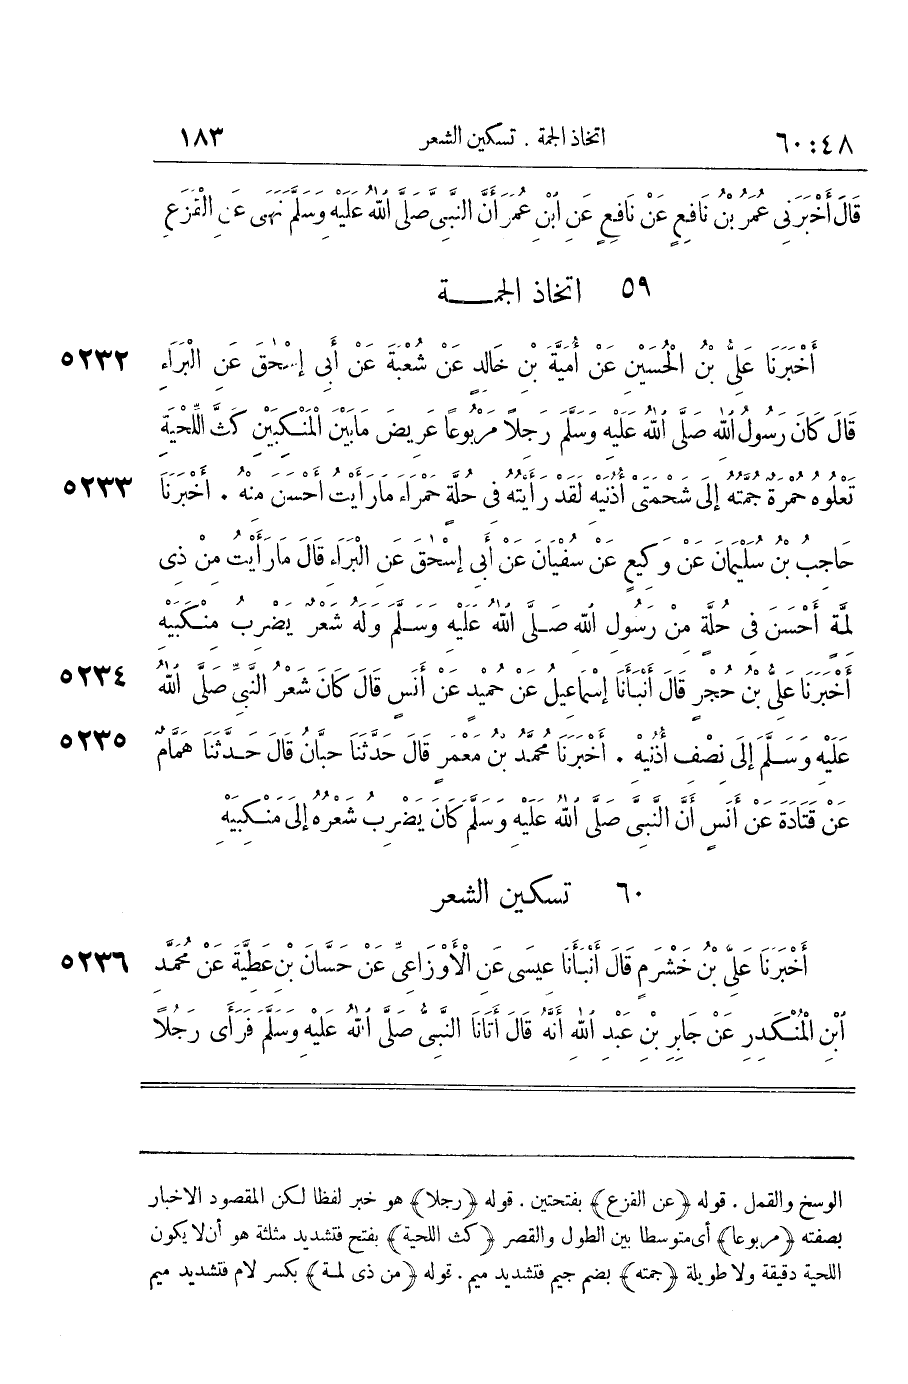 ٤٨ : ٦٠ اتخاذ الجمة . تسكين الشعر ١٨٣
قَالَ أَخْبَرَنِى عُمَرُ بْنُ نَافِعٍ عَنْ نَافِعٍ عَنِ ابْنِ عُمَرَ أَنَّ النَّبِىَّ صَلَّى اللهُ عَلَيْهِ وَسَلَّمَ نَهَى عَنِ الْقَزَعِ
٥٩ اتخاذ الجمة
٥٢٣٢ أَخْبَرَنَا عَلِىُّ بْنُ الْحُسَيْنِ عَنْ أُمَيَّةَ بْنِ خَالِدٍ عَنْ شُعْبَةَ عَنْ أَبِى إِسْحٰقَ عَنِ الْبَرَاءِ
قَالَ كَانَ رَسُولُ اللهِ صَلَّى اللهُ عَلَيْهِ وَسَلَّمَ رَجِلًا مَرْبُوعًا عَرِيضَ مَابَيْنَ الْمَنْكِبَيْنِ كَثَّ اللِّحْيَةِ
٥٢٣٣ تَعْلُوهُ حُمْرَةٌ جُمَّتُهُ إِلَى شَحْمَتَىْ أُذُنَيْهِ لَقَدْ رَأَيْتُهُ فِى حُلَّةٍ حَمْرَاءَ مَارَأَيْتُ أَحْسَنَ مِنْهُ . أَخْبَرَنَا
حَاجِبُ بْنُ سُلَيْمَانَ عَنْ وَكِيعٍ عَنْ سُفْيَانَ عَنْ أَبِى إِسْحٰقَ عَنِ الْبَرَاءِ قَالَ مَارَأَيْتُ مِنْ ذِى
لِمَّةٍ أَحْسَنَ فِى حُلَّةٍ مِنْ رَسُولِ اللهِ صَلَّى اللهُ عَلَيْهِ وَسَلَّمَ وَلَهُ شَعْرٌ يَضْرِبُ مَنْكِبَيْهِ
٥٢٣٤ أَخْبَرَنَا عَلِىُّ بْنُ حُجْرٍ قَالَ أَنْبَأَنَا إِسْمَاعِيلُ عَنْ حُمَيْدٍ عَنْ أَنَسٍ قَالَ كَانَ شَعْرُ النَّبِىِّ صَلَّى اللهُ
٥٢٣٥ عَلَيْهِ وَسَلَّمَ إِلَى نِصْفِ أُذُنَيْهِ . أَخْبَرَنَا مُحَمَّدُ بْنُ مَعْمَرٍ قَالَ حَدَّثَنَا حَبَّانُ قَالَ حَدَّثَنَا هَمَّامٌ
عَنْ قَتَادَةَ عَنْ أَنَسٍ أَنَّ النَّبِىَّ صَلَّى اللهُ عَلَيْهِ وَسَلَّمَ كَانَ يَضْرِبُ شَعْرُهُ إِلَى مَنْكِبَيْهِ
٦٠ تسكين الشعر
٥٢٣٦ أَخْبَرَنَا عَلِىُّ بْنُ خَشْرَمٍ قَالَ أَنْبَأَنَا عِيسَى عَنِ الْأَوْزَاعِىِّ عَنْ حَسَّانَ بْنِ عَطِيَّةَ عَنْ مُحَمَّدِ
ابْنِ الْمُنْكَدِرِ عَنْ جَابِرِ بْنِ عَبْدِ اللهِ أَنَّهُ قَالَ أَتَانَا النَّبِىُّ صَلَّى اللهُ عَلَيْهِ وَسَلَّمَ فَرَأَى رَجُلًا
الوسخ والقمل . قوله ﴿عن القزع﴾ بفتحتين . قوله ﴿رجلا﴾ هو خبر لفظا لكن المقصود الاخبار
بصفته ﴿مربوعا﴾ أى متوسطا بين الطول والقصر ﴿كث اللحية﴾ بفتح فتشديد مثلثة هو أن لا يكون
اللحية دقيقة ولا طويلة ﴿جمته﴾ بضم جيم فتشديد ميم . قوله ﴿من ذى لمة﴾ بكسر لام فتشديد ميم